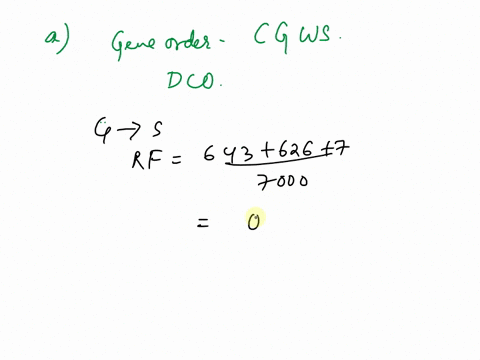 a) Gene order - CG WS.
DCO.
G → S
RF = 643+626+7
7000
= 0